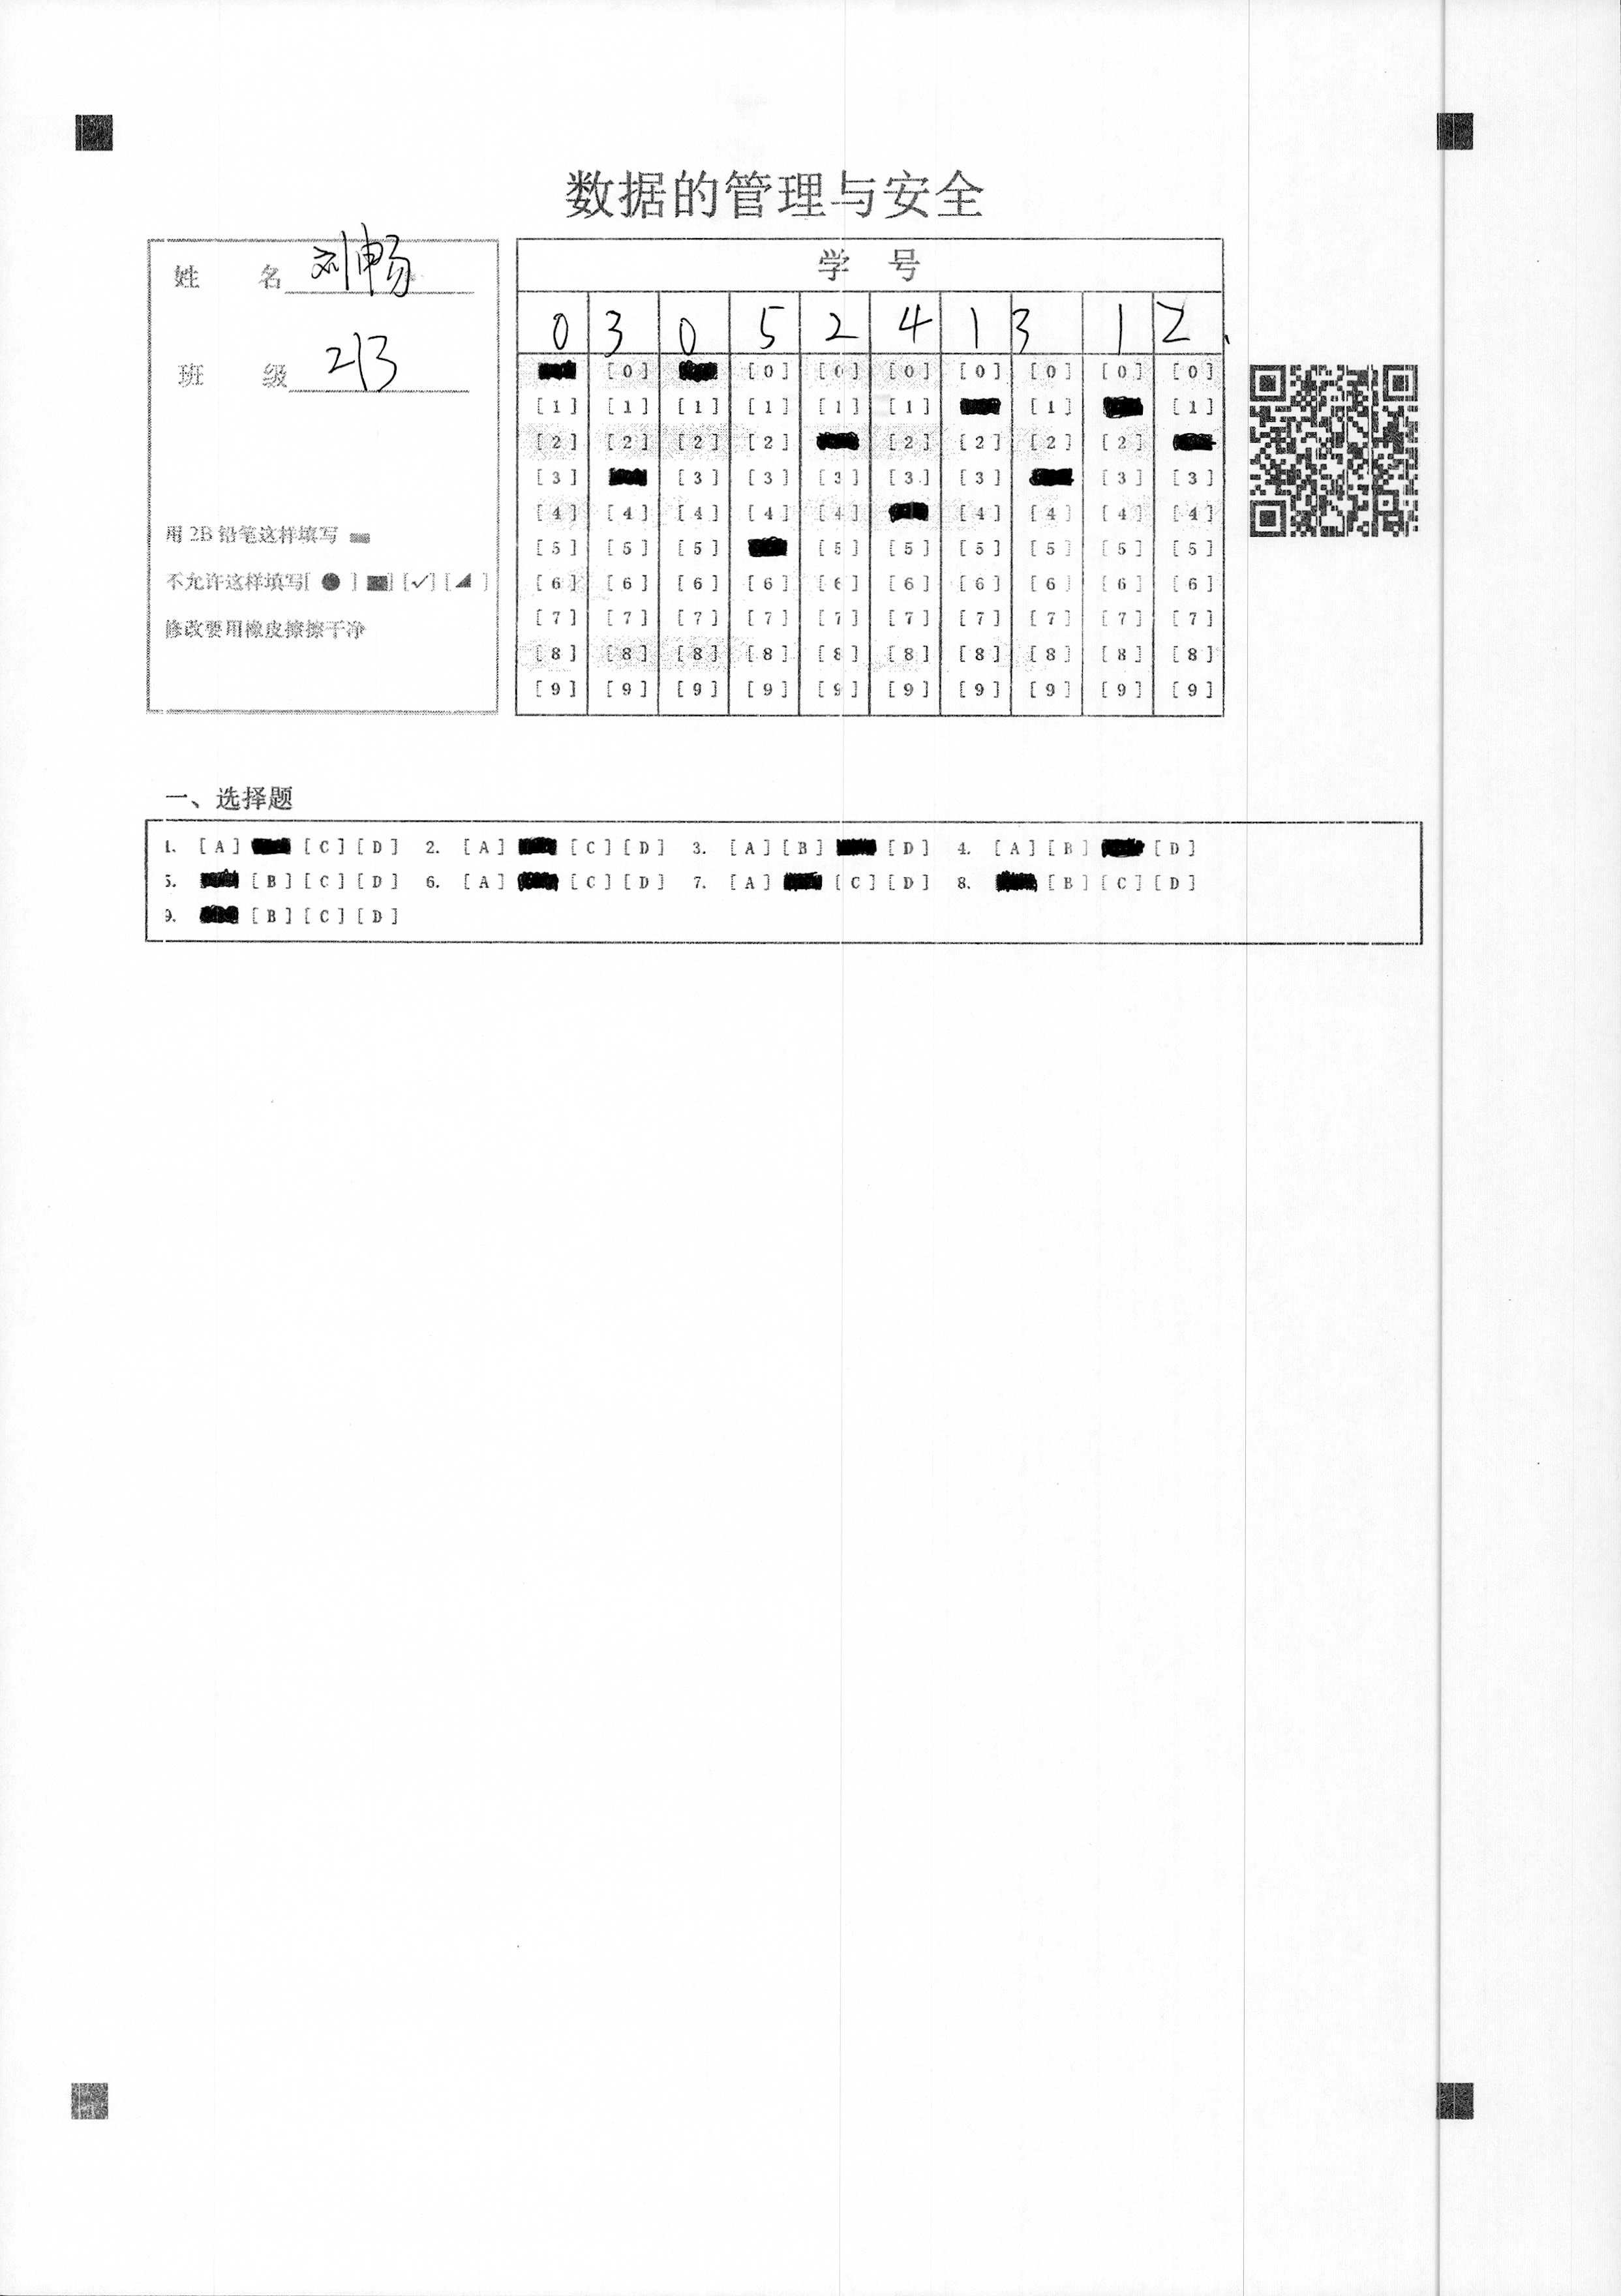 数据的管理与安全
姓 名 刘畅
班 级 213
用 2B 铅笔这样填写
不允许这样填写[ ● ] [■] [✓] [◢ ]
修改要用橡皮擦擦干净
学 号
0 3 0 5 2 4 1 3 1 2
[0] [0] [0] [0] [0] [0] [0] [0]
[1] [1] [1] [1] [1] [1] [1] [1]
[2] [2] [2] [2] [2] [2] [2] [2]
[3] [3] [3] [3] [3] [3] [3] [3]
[4] [4] [4] [4] [4] [4] [4] [4] [4]
[5] [5] [5] [5] [5] [5] [5] [5] [5]
[6] [6] [6] [6] [6] [6] [6] [6] [6] [6]
[7] [7] [7] [7] [7] [7] [7] [7] [7] [7]
[8] [8] [8] [8] [8] [8] [8] [8] [8] [8]
[9] [9] [9] [9] [9] [9] [9] [9] [9] [9]
一、选择题
1. [A] [C] [D] 2. [A] [C] [D] 3. [A] [B] [D] 4. [A] [B] [D]
5. [B] [C] [D] 6. [A] [C] [D] 7. [A] [C] [D] 8. [B] [C] [D]
9. [B] [C] [D]